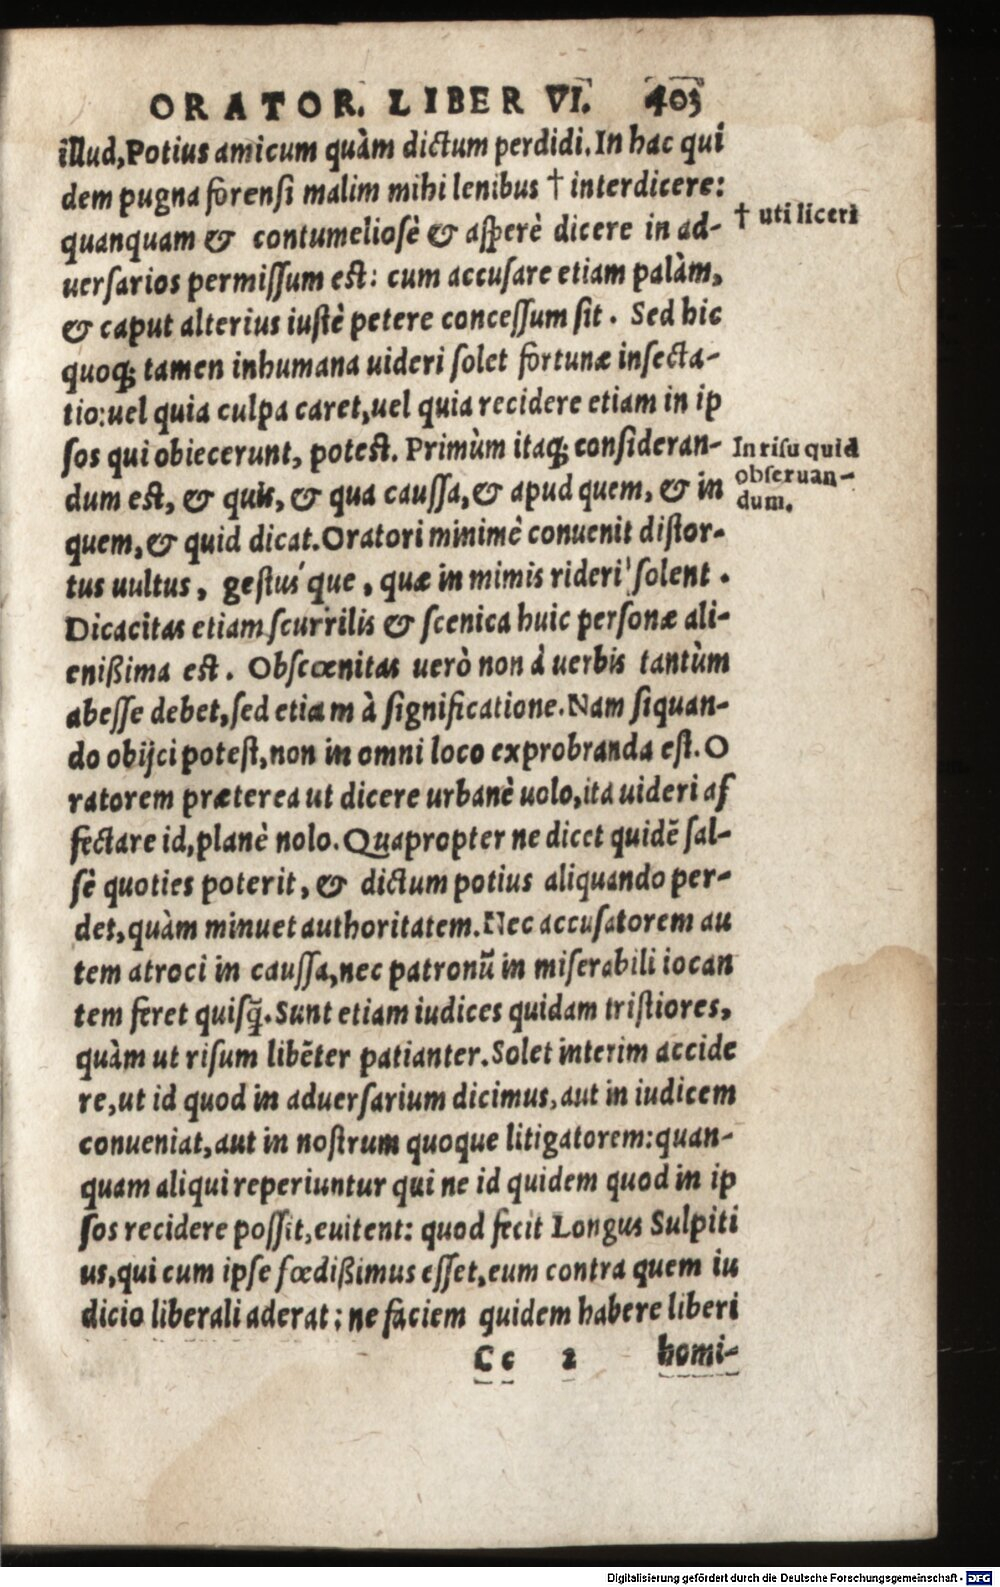 ORATOR. LIBER VI. 403
illud, Potius amicum quàm dictum perdidi. In hac qui
dem pugna forensi malim mihi lenibus † interdicere:
† uti liceri
quanquam & contumeliosè & asperè dicere in ad-
uersarios permissum est: cum accusare etiam palàm,
& caput alterius iustè petere concessum sit. Sed hic
quoq; tamen inhumana uideri solet fortunæ insecta-
tio: uel quia culpa caret, uel quia recidere etiam in ip
sos qui obiecerunt, potest. Primùm itaq; consideran-
In risu quid
obseruan-
dum.
dum est, & quis, & qua caussa, & apud quem, & in
quem, & quid dicat. Oratori minimè conuenit distor-
tus uultus, gestus´que, quæ in mimis rideri solent.
Dicacitas etiam scurrilis & scenica huic personæ ali-
enißima est. Obscœnitas uerò non à uerbis tantùm
abesse debet, sed etiam à significatione. Nam siquan-
do obijci potest, non in omni loco exprobranda est. O
ratorem præterea ut dicere urbanè uolo, ita uideri af
fectare id, planè nolo. Quapropter ne dicet quidē sal-
sè quoties poterit, & dictum potius aliquando per-
det, quàm minuet authoritatem. Nec accusatorem au
tem atroci in caussa, nec patronū in miserabili iocan
tem feret quisq̃. Sunt etiam iudices quidam tristiores,
quàm ut risum libēter patianter. Solet interim accide
re, ut id quod in aduersarium dicimus, aut in iudicem
conueniat, aut in nostrum quoque litigatorem: quan-
quam aliqui reperiuntur qui ne id quidem quod in ip
sos recidere possit, euitent: quod fecit Longus Sulpiti
us, qui cum ipse fœdißimus esset, eum contra quem iu
dicio liberali aderat; ne faciem quidem habere liberi
Cc 2 homi-
Digitalisierung gefördert durch die Deutsche Forschungsgemeinschaft - DFG